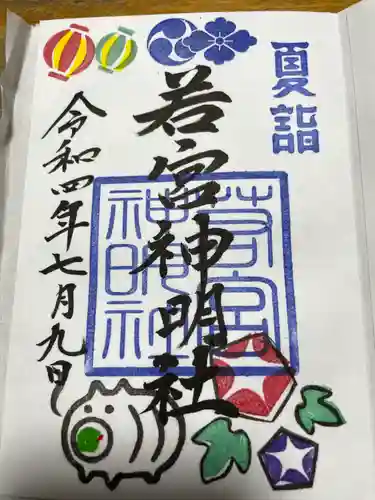 夏詣
若宮神明社
若宮
神明社
令和四年七月九日